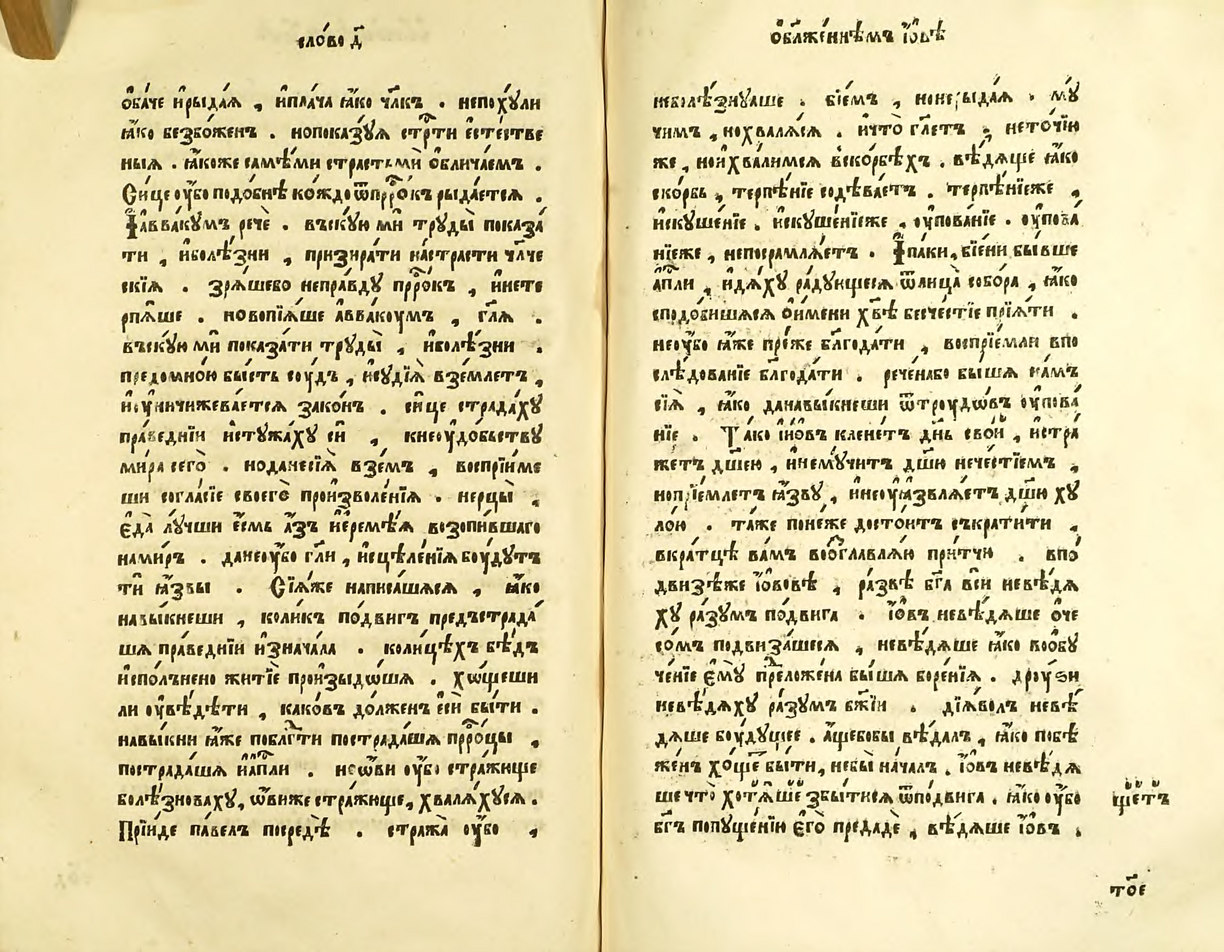 сло́во д҃
ѻ҆ба́че и҆рыда́ѧ , и҆пла́ча ꙗ҆́ко чл҃къ . непохꙋ́ли
ꙗ҆́ко безбо́женъ . нопоказꙋ́ѧ стрⷭ҇ти є҆сте́стве
ныѧ . ꙗ҆́коже самѣ́ми страстьмѝ ѡ҆блича́емъ .
Си́це оу҆́бо подо́бнѣ ко́ждо ѿпрⷪ҇ро́къ рыда́етсѧ .
І҆авваку́мъ речѐ . въску́ю мѝ трꙋды̀ показа́
ти , и҆болѣ́зни , призира́ти настра́сти чл҃че
скїѧ . зрѧ́шебо непра́вдꙋ прⷪ҇ро́къ , и҆нете
рпѧ́ше . новопїѧ́ше авваку́мъ , гл҃ѧ .
въскꙋ́ю мѝ показа́ти трꙋды̀ , и҆болѣ́зни .
предомно́ю бы́сть соу́дъ , и҆соудїѧ̀ взе́млетъ ,
и҆оуничижева́етсѧ зако́нъ . си́це страда́хꙋ
пра́веднїи и҆стꙋжа́хꙋ сѝ , кнеоудо́бьствꙋ
ми́ра сего̀ . нодане́сїѧ взе́мъ , воспрїи́ме
ши согла́сїе своего̀ произволе́нїѧ . нерцы̀ ,
є҆да̀ лꙋ́чши є҆смь а҆́зъ и҆еремѣ́ѧ возопи́вшаго
нами́ръ . данеоу҆́бо гл҃и , и҆сцѣле́нїѧ боу́дꙋтъ
тѝ ꙗ҆́звы . Сїѧ́же написа́шасѧ , ꙗ҆́ко
навы́кнеши , коли́къ по́двигъ предъстрада́
шѧ пра́веднїи и҆знача́ла . коли́цѣхъ бѣ́дъ
и҆спо́лънено житїѐ произыдо́шѧ . хо́щеши
ли оу҆вѣ́дѣти , како́въ до́лженъ є҆сѝ бы́ти .
навы́кни ꙗ҆́же поблⷣгти пострада́шѧ прⷪ҇ро́цы ,
пострада́шѧ и҆а҆пⷭ҇ли . нѡ҆́ви оу҆́бо стра́жище
болѣ́зноваху, ѡ҆́виже стра́жище, хвалѧ́хꙋсѧ .
Прїи́де па́велъ посредѣ̀ . стража̀ оу҆́бо ,
ѻ҆блаже́ннѣмъ і҆́овѣ
неболѣ́знꙋаше . бїе́мъ , ноне рыда́ѧ . мꙋ́
чимъ , нохвалѧ́сѧ . и҆что̀ гл҃етъ , нето́чїю
же , нои҆хва́лимсѧ вско́рбѣхъ . вѣ́дѧще ꙗ҆́ко
ско́рбь , терпѣ́нїе содѣва́етъ . терпѣ́нїеже ,
и҆скушенїе . и҆скушенїеже , оупова́нїе . оупова́
нїеже , непосрамлѧ́етъ . І҆па́ки, бїе́ни бы́вше
а҆пⷭ҇ли , и҆дѧ́хꙋ ра́дующесѧ ѿлица̀ собо́ра , ꙗ҆́ко
сподо́бишасѧ ѻ҆и҆́мени хв҃ѣ бесче́стїе прїѧ́ти .
неоу҆́бо ꙗ҆́же пре́же блгода́ти , воспрїе́мли впо
слѣ́дованїе блгода́ти . рече́набо бы́шѧ на́мъ
сїѧ̀ , ꙗ҆́ко данавы́кнеши ѿтроудо́въ оупова́
нїе . Та́ко і҆́ѡвъ клене́тъ дн҃ь свой , и҆стра
жетъ дш҃ею , и҆немꙋ́читъ дш҃ю нече́стїемъ ,
нопрїе́млетъ ꙗ҆́звꙋ , и҆неоуꙗзвлѧ́етъ дш҃ю хꙋ
ло́ю . та́же поне́же досто́итъ съкрати́ти ,
вкра́тцѣ ва́мъ воѡглавлѧ́ю при́тчю . впо́
двизѣже і҆́ововѣ , ра́звѣ бг҃а всѝ невѣ́дѧ
хꙋ ра́зꙋмъ по́двига . і҆́овъ невѣ́дѧше ѻ҆че
со́мъ подвиза́шесѧ , невѣ́дѧше ꙗ҆́ко воѡбꙋ
че́нїе є҆мꙋ̀ преложена̀ бы́шѧ боре́нїѧ . дроу́ѕи
невѣ́дѧхꙋ ра́зꙋмъ бж҃їи . дїѧ́волъ невѣ́
дѧше боу́дꙋщее . а҆́щебобы вѣ́далъ , ꙗ҆́ко побѣ
женъ хо́ще бы́ти, небы̀ нача́лъ . і҆́овъ невѣ́дѧ
ше что̀ хотѧ́ше збы́тисѧ ѿпо́двига . ꙗ҆́ко оу҆́бо
щетъ
бг҃ъ попꙋще́нїю є҆го̀ предадѐ , вѣ́дѧше і҆́овъ .
то́е